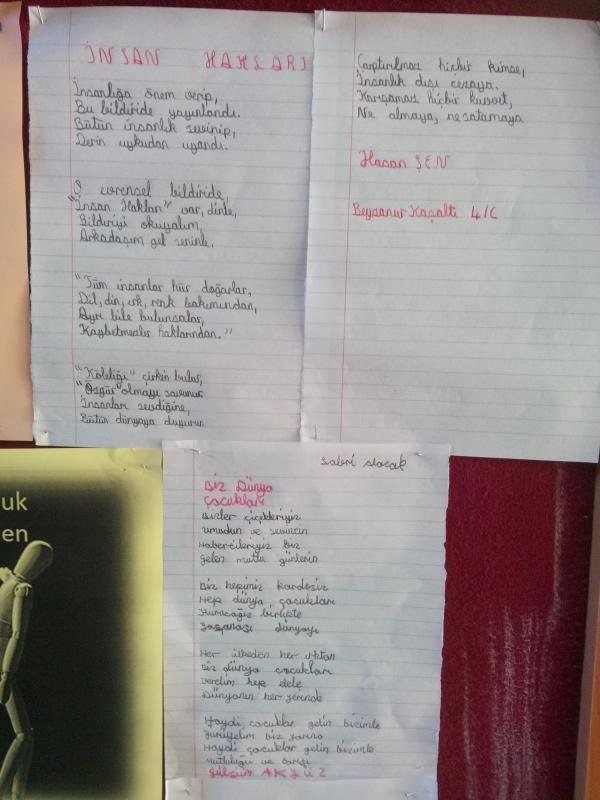 İNSAN HAKLARI
İnsanlığa önem verip,
Bu bildiride yayınlandı.
Bütün insanlık sevinip,
Derin uykudan uyandı.
O evrensel bildiride,
"İnsan Hakları" var, dinle,
Bildiriyi okuyalım,
Arkadaşım gel seninle.
"Tüm insanlar hür doğarlar,
Dil, din, ırk, renk bakımından,
Ayrı bile bulunsalar,
Kaybetmezler haklarından."
"Köleliği" çirkin bulur,
"Özgür" olmayı savunur
İnsanları sevdiğine,
Bütün dünyaya duyurur
Çarptırılmaz hiçbir kimse,
İnsanlık dışı cezaya.
Karışamaz hiçbir kuvvet,
Ne almaya, ne satamaya
Hasan ŞEN
Beyzanur Kaçaltı 4/C
uk
en
Sabri olacak
Biz Dünya
Çocukları
Bizler çiçekleriyiz
umudun ve sevincin
Habercileriyiz biz
Gelen mutlu günlerin
Biz hepimiz kardeşiz
Hep dünya çocukları
Kuracağız birlikte
Yaşanası dünyayı
Her ülkeden her ıktan
Biz dünya çocukları
verelim hep elele
Dünyanın her yerinde
Haydi çocuklar gelin bizimle
yürüyelim biz yarına
Haydi çocuklar gelin bizimle
Mutluluğu ve barışı
Gülsüm AKYÜZ